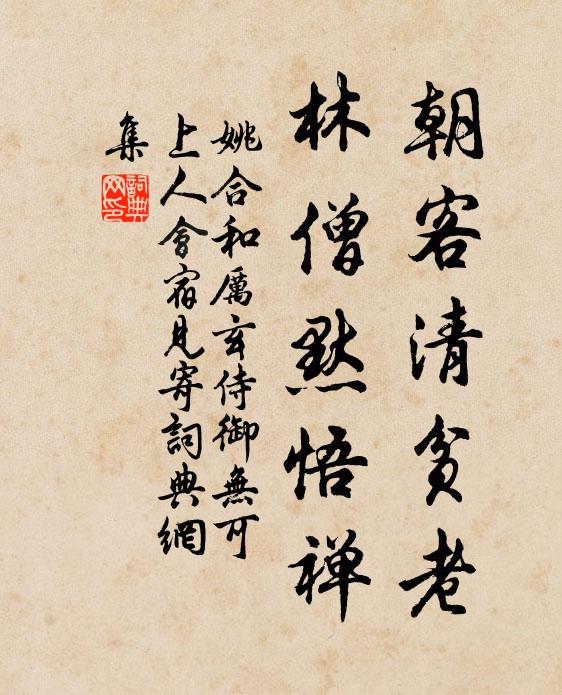 朝客清貧老
林僧默悟禅
姚合和厲玄侍御無可
上人會宿見寄詞典網
集
詞典
网印